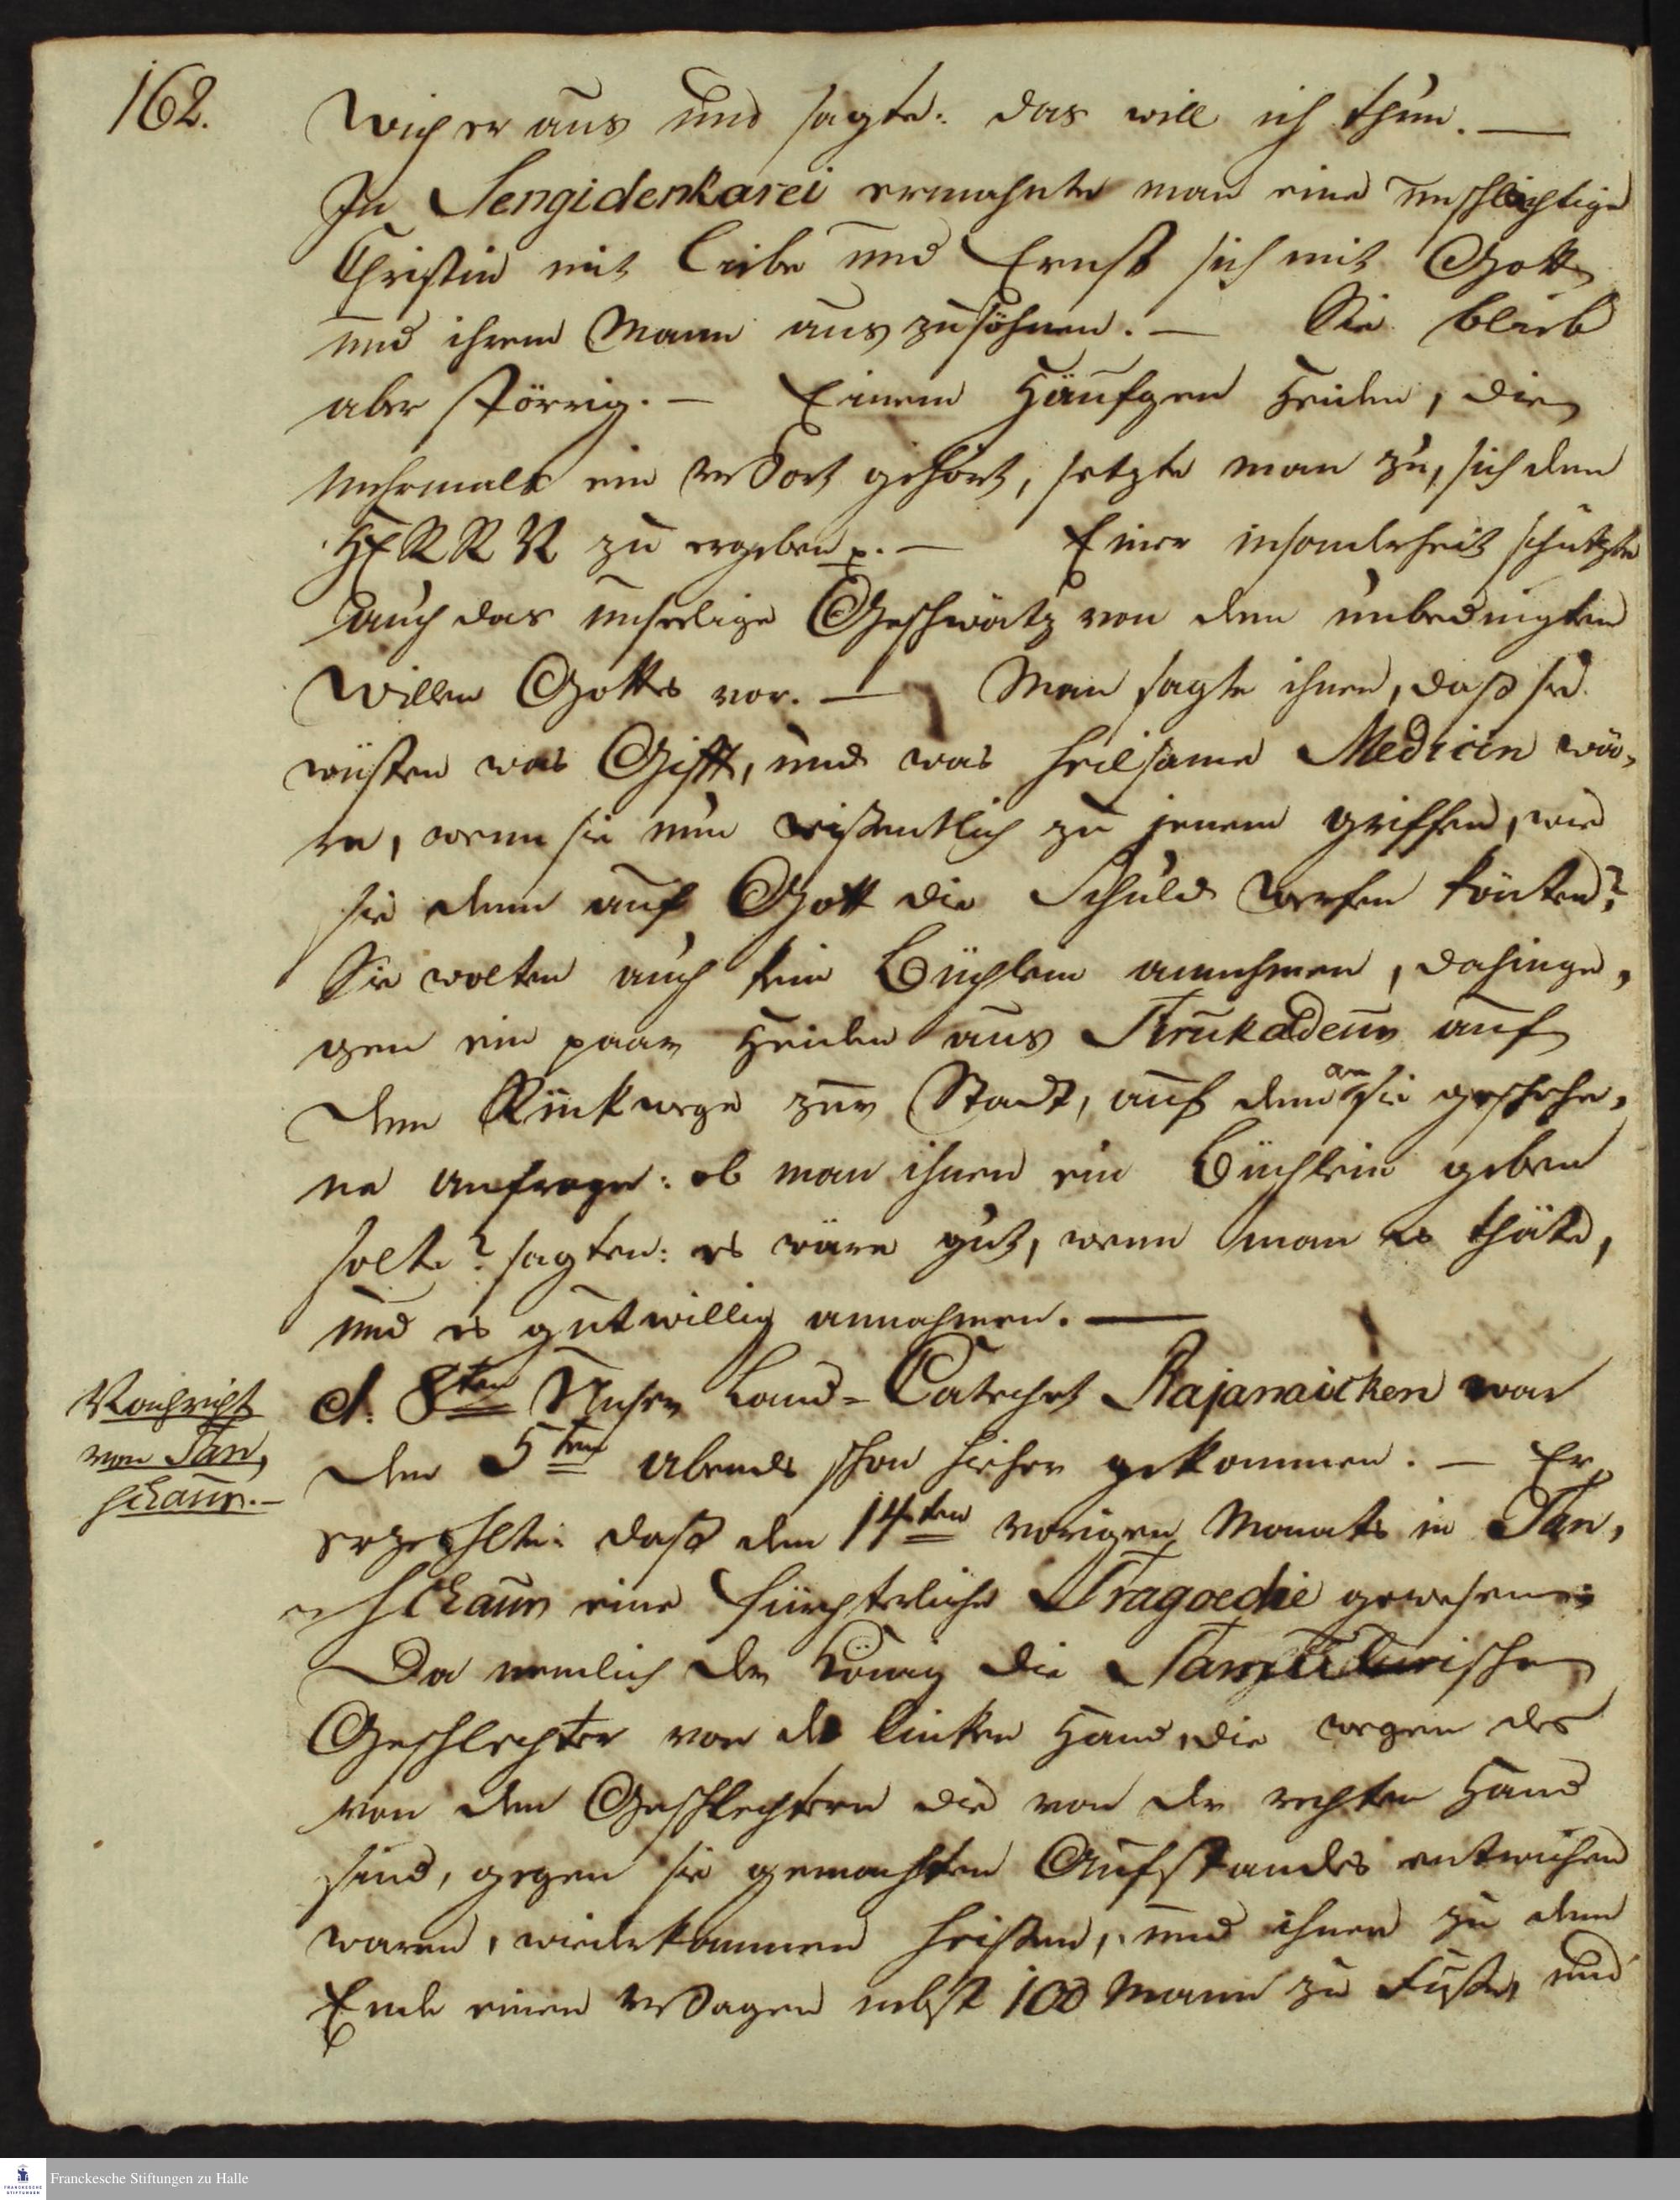 162.
Wich er aus und sagte: das will ich thun. —
In Sengidenkarei ermahnte man eine unschlachtige
Christin mit Liebe und Ernst sich mit Gott
und ihrem Mann auszusöhnen. — Sie blieb
aber störrig. — Einem Häufgen Heiden, die
mehrmals ein Wort gehört, setzte man zu, sich dem
HERRN zu ergeben p. — Einer insonderheit schützte
auch das unseelige Geschwätz von dem unbedingten
Willen Gottes vor. — Man sagte ihnen, daß sie
wüsten was Gifft, und was heilsame Medicin wä,
re, wenn sie nun wißentlich zu jenem griffen, wie
sie denn auf Gott die Schuld werfen könten?
Sie wolten auch kein Büchlein annehmen, dahinge,
gen ein paar Heiden aus Tirukadeur auf
dem Rükwege zur Stadt, auf die an sie geschehe,
ne Anfrage: ob man ihnen ein Büchlein geben
solte? sagten: es wäre gut, wenn man es thäte,
und es gutwillig annahmen. —
Nachricht
von Tan,
schaur. —
d. 8ten Unser Land-Catechet Rajanaicken war
den 5ten abends schon hieher gekommen. — Er
erzehlte: daß den 14ten vorigen Monats in Tan,
schaur eine fürchterliche Tragoedie gewesen:
Da nemlich der König die Tanschaurischen
Geschlechter von der linken Hand, die wegen des
von den Geschlechtern die von der rechten Hand
sind, gegen sie gemachten Aufstandes entwichen
waren, wiederkommen heißen, und ihnen zu dem
Ende einen Wagen nebst 100 Mann zu Fuße, und
Franckesche Stiftungen zu Halle